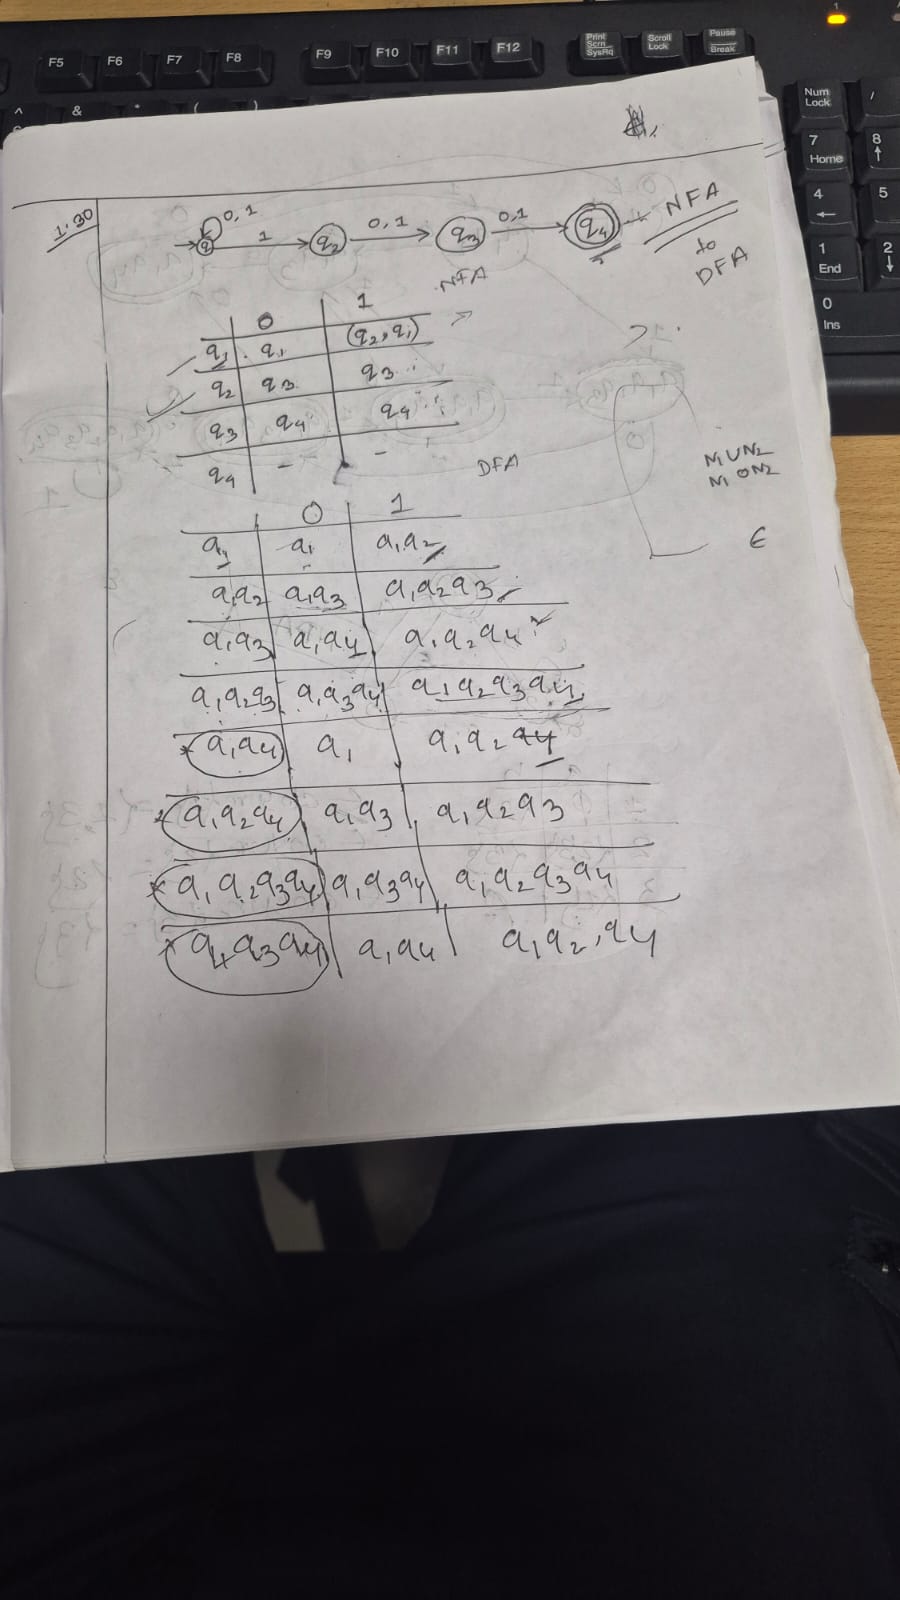 F5 F6 F7 F8 F9 F10 F11 F12 Print Scrn SysRq Scroll Lock Pause Break
^ & * ( )
1
Num Lock /
7 Home 8 ↑
4 ← 5
1 End 2 ↓
0 Ins
1.30
0,1 1 q2 0,1 q3 0,1 q4
NFA
to
DFA
NFA
0 1
q1 q1 (q2, q1)
q2 q3 q3
q3 q4 q4
q4 - -
N1 U N2
N1 O N2
∈
DFA
0 1
q1 q1 q1q2
q1q2 q1q3 q1q2q3
q1q3 q1q4 q1q2q4
q1q2q3 q1q3q4 q1q2q3q4
* q1q4 q1 q1q2q4
* q1q2q4 q1q3 q1q2q3
* q1q2q3q4 q1q3q4 q1q2q3q4
* q1q3q4 q1q4 q1q2,q4